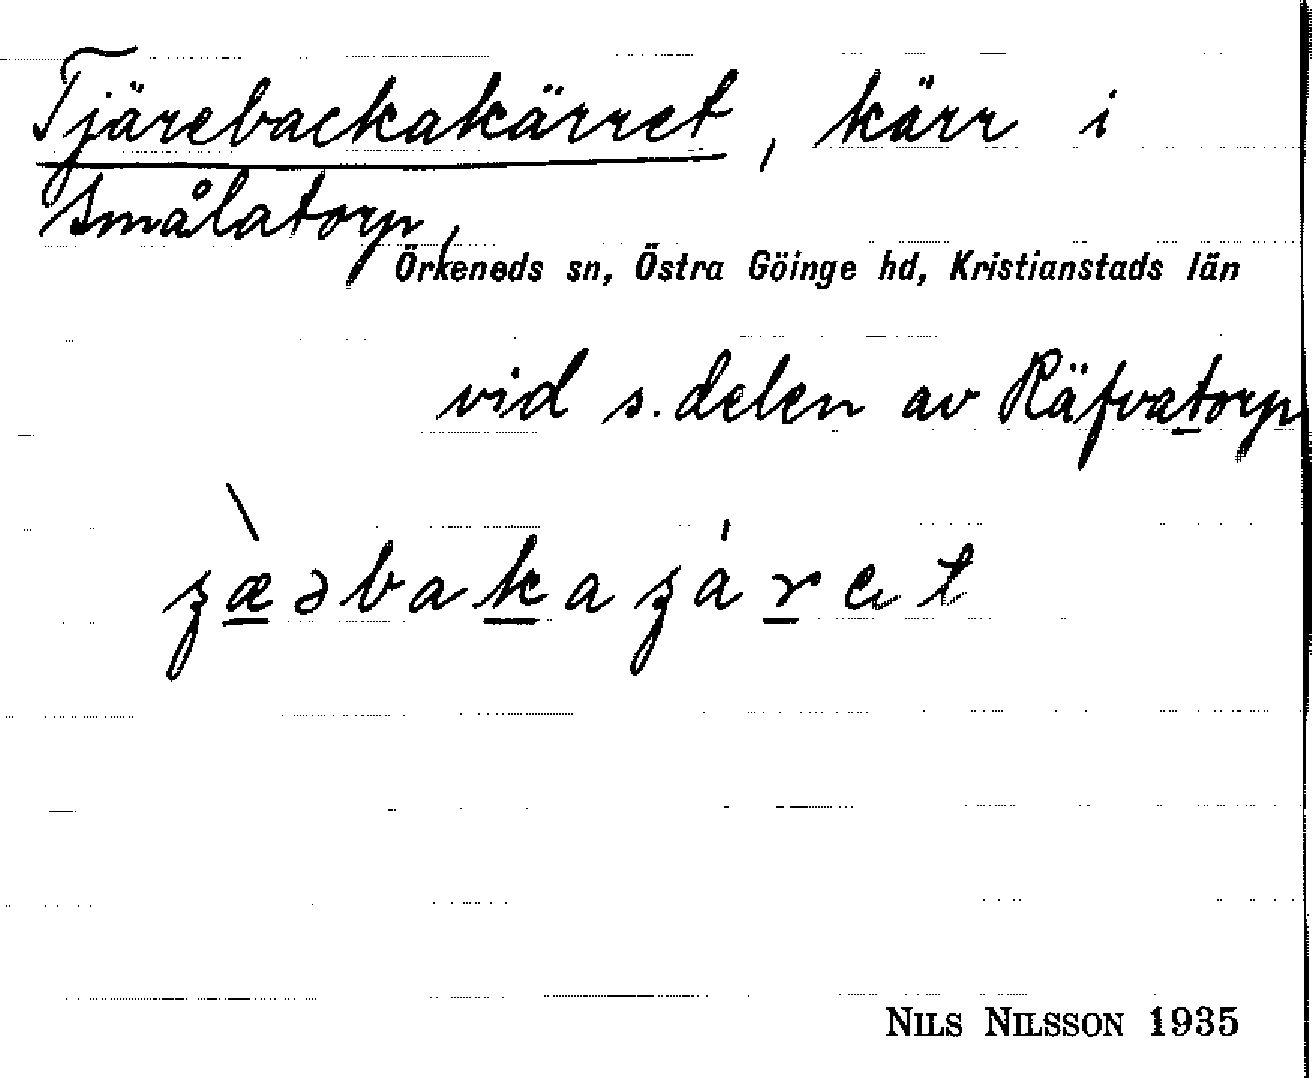 Tjärebackakärret, kärr i
Smålatorp,
Örkeneds sn, Östra Göinge hd, Kristianstads län
vid s. delen av Räfvatorp
NILS NILSSON 1935